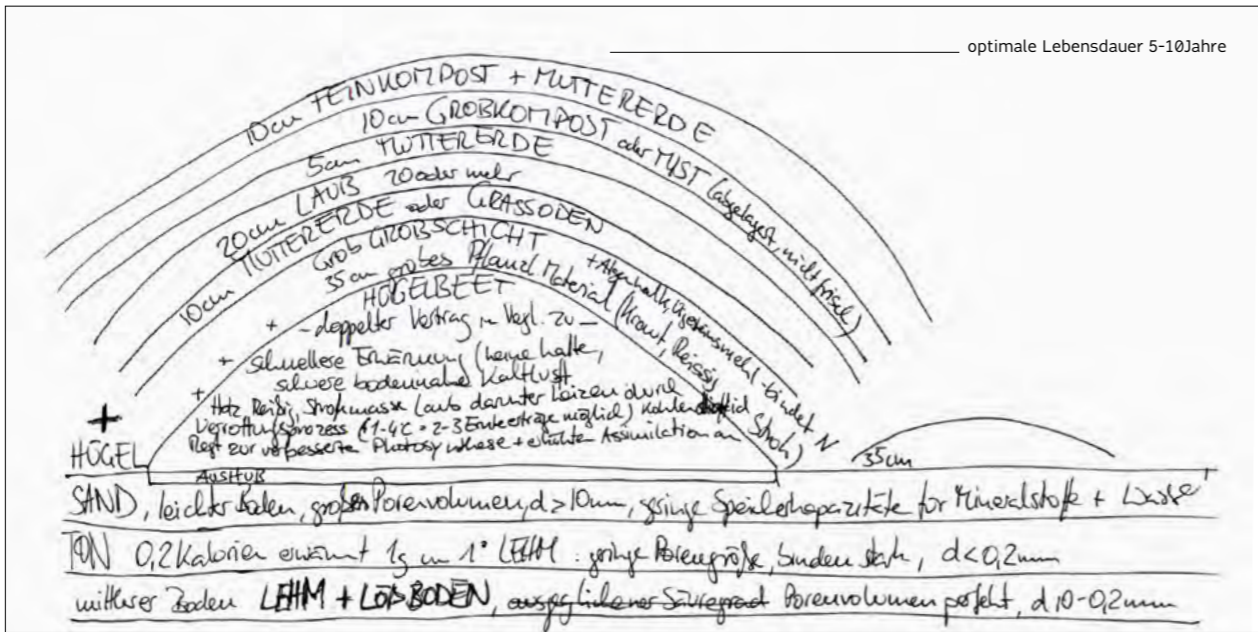 optimale Lebensdauer 5-10Jahre
10cm FEINKOMPOST + MUTTERERDE
10cm GROBKOMPOST oder MIST (abgelagert, nicht frisch)
5cm MUTTERERDE
20cm LAUB 20 oder mehr
10cm MUTTERERDE oder GRASSODEN
Grob GROBSCHICHT
35cm grobes Pflanzl Material (Kraut, Reissig, Stroh)
bindet N
HÜGELBEET
+ - doppelter in Vergl. zu -
+ schnellere Erwärmung (keine kalte,
schwere bodennahe Kaltluft
+ Holz Reißig, Strohmasse Laub darunter heizen durch
Verrottungsprozess 2-3 Ernteerträge möglich)
Regt zur verbesserten Photosynthese + erhöhten Assimilation an
+
HÜGEL
35cm
AUSHUB
SAND, leichter Boden, großes Porenvolumen, d>10mm, geringe Speicherkapazität für Mineralstoffe +
TON 0,2 Kalorien erwärmt 1g um 1° LEHM: geringe Porengröße, binden stark, d<0,2mm
mittlerer Boden LEHM + LÖßBODEN, ausgeglichener Säuregrad Porenvolumen perfekt, d 10-0,2mm